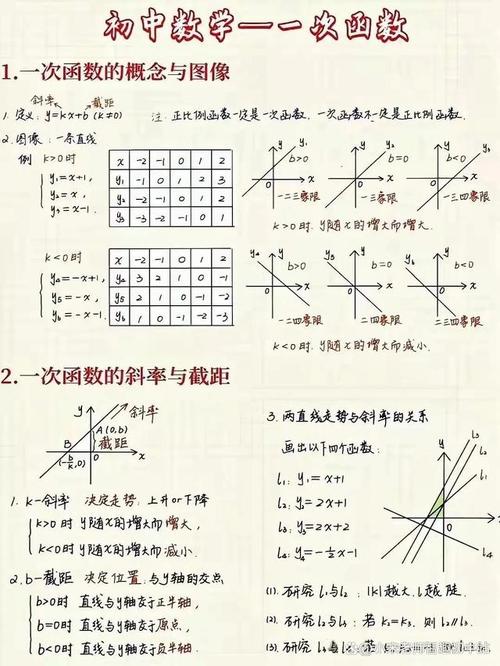 初中数学——一次函数
1.一次函数的概念与图像
斜率 截距
1. 定义: y=kx+b (k≠0) 注: 正比例函数一定是一次函数, 一次函数不一定是正比例函数.
2. 图像: 一条直线
例 k>0时
y₁=x+1,
y₂=x,
y₃=x-1.
x -2 -1 0 1 2
y₁ -1 0 1 2 3
y₂ -2 -1 0 1 2
y₃ -3 -2 -1 0 1
y y₁ b>0 x 一二三象限
y y₂ b=0 x 一三象限
y y₃ b<0 x 一三四象限
k>0时. y随x的增大而增大.
k<0时
y₄=-x+1,
y₅=-x,
y₆=-x-1.
x -2 -1 0 1 2
y₄ 3 2 1 0 -1
y₅ 2 1 0 -1 -2
y₆ 1 0 -1 -2 -3
y₄ y b>0 x 一二四象限
y₅ y b=0 x 二四象限
y₆ y b<0 x 二三四象限
k<0时. y随x的增大而减小.
2.一次函数的斜率与截距
y 斜率
A(0,b)
截距
B 0 x
(-b/k,0)
1. k—斜率 决定走势: 上升or下降
k>0时 y随x的增大而增大,
k<0时 y随x的增大而减小.
2. b—截距 决定位置: 与y轴的交点
b>0时 直线与y轴交于正半轴,
b=0时 直线与y轴交于原点,
b<0时 直线与y轴交于负半轴.
3. 两直线走势与斜率的关系
画出以下四个函数:
l₁: y₁=x+1
l₂: y₂=2x+1
l₃: y₃=2x+2
l₄: y₄=-½x-1
y l₃ l₂ l₁
0 x
l₄
(1). 研究l₁与l₂: |k|越大, l越陡.
(2). 研究l₂与l₃: 若k₂=k₃, 则l₂∥l₃.
(3). 研究